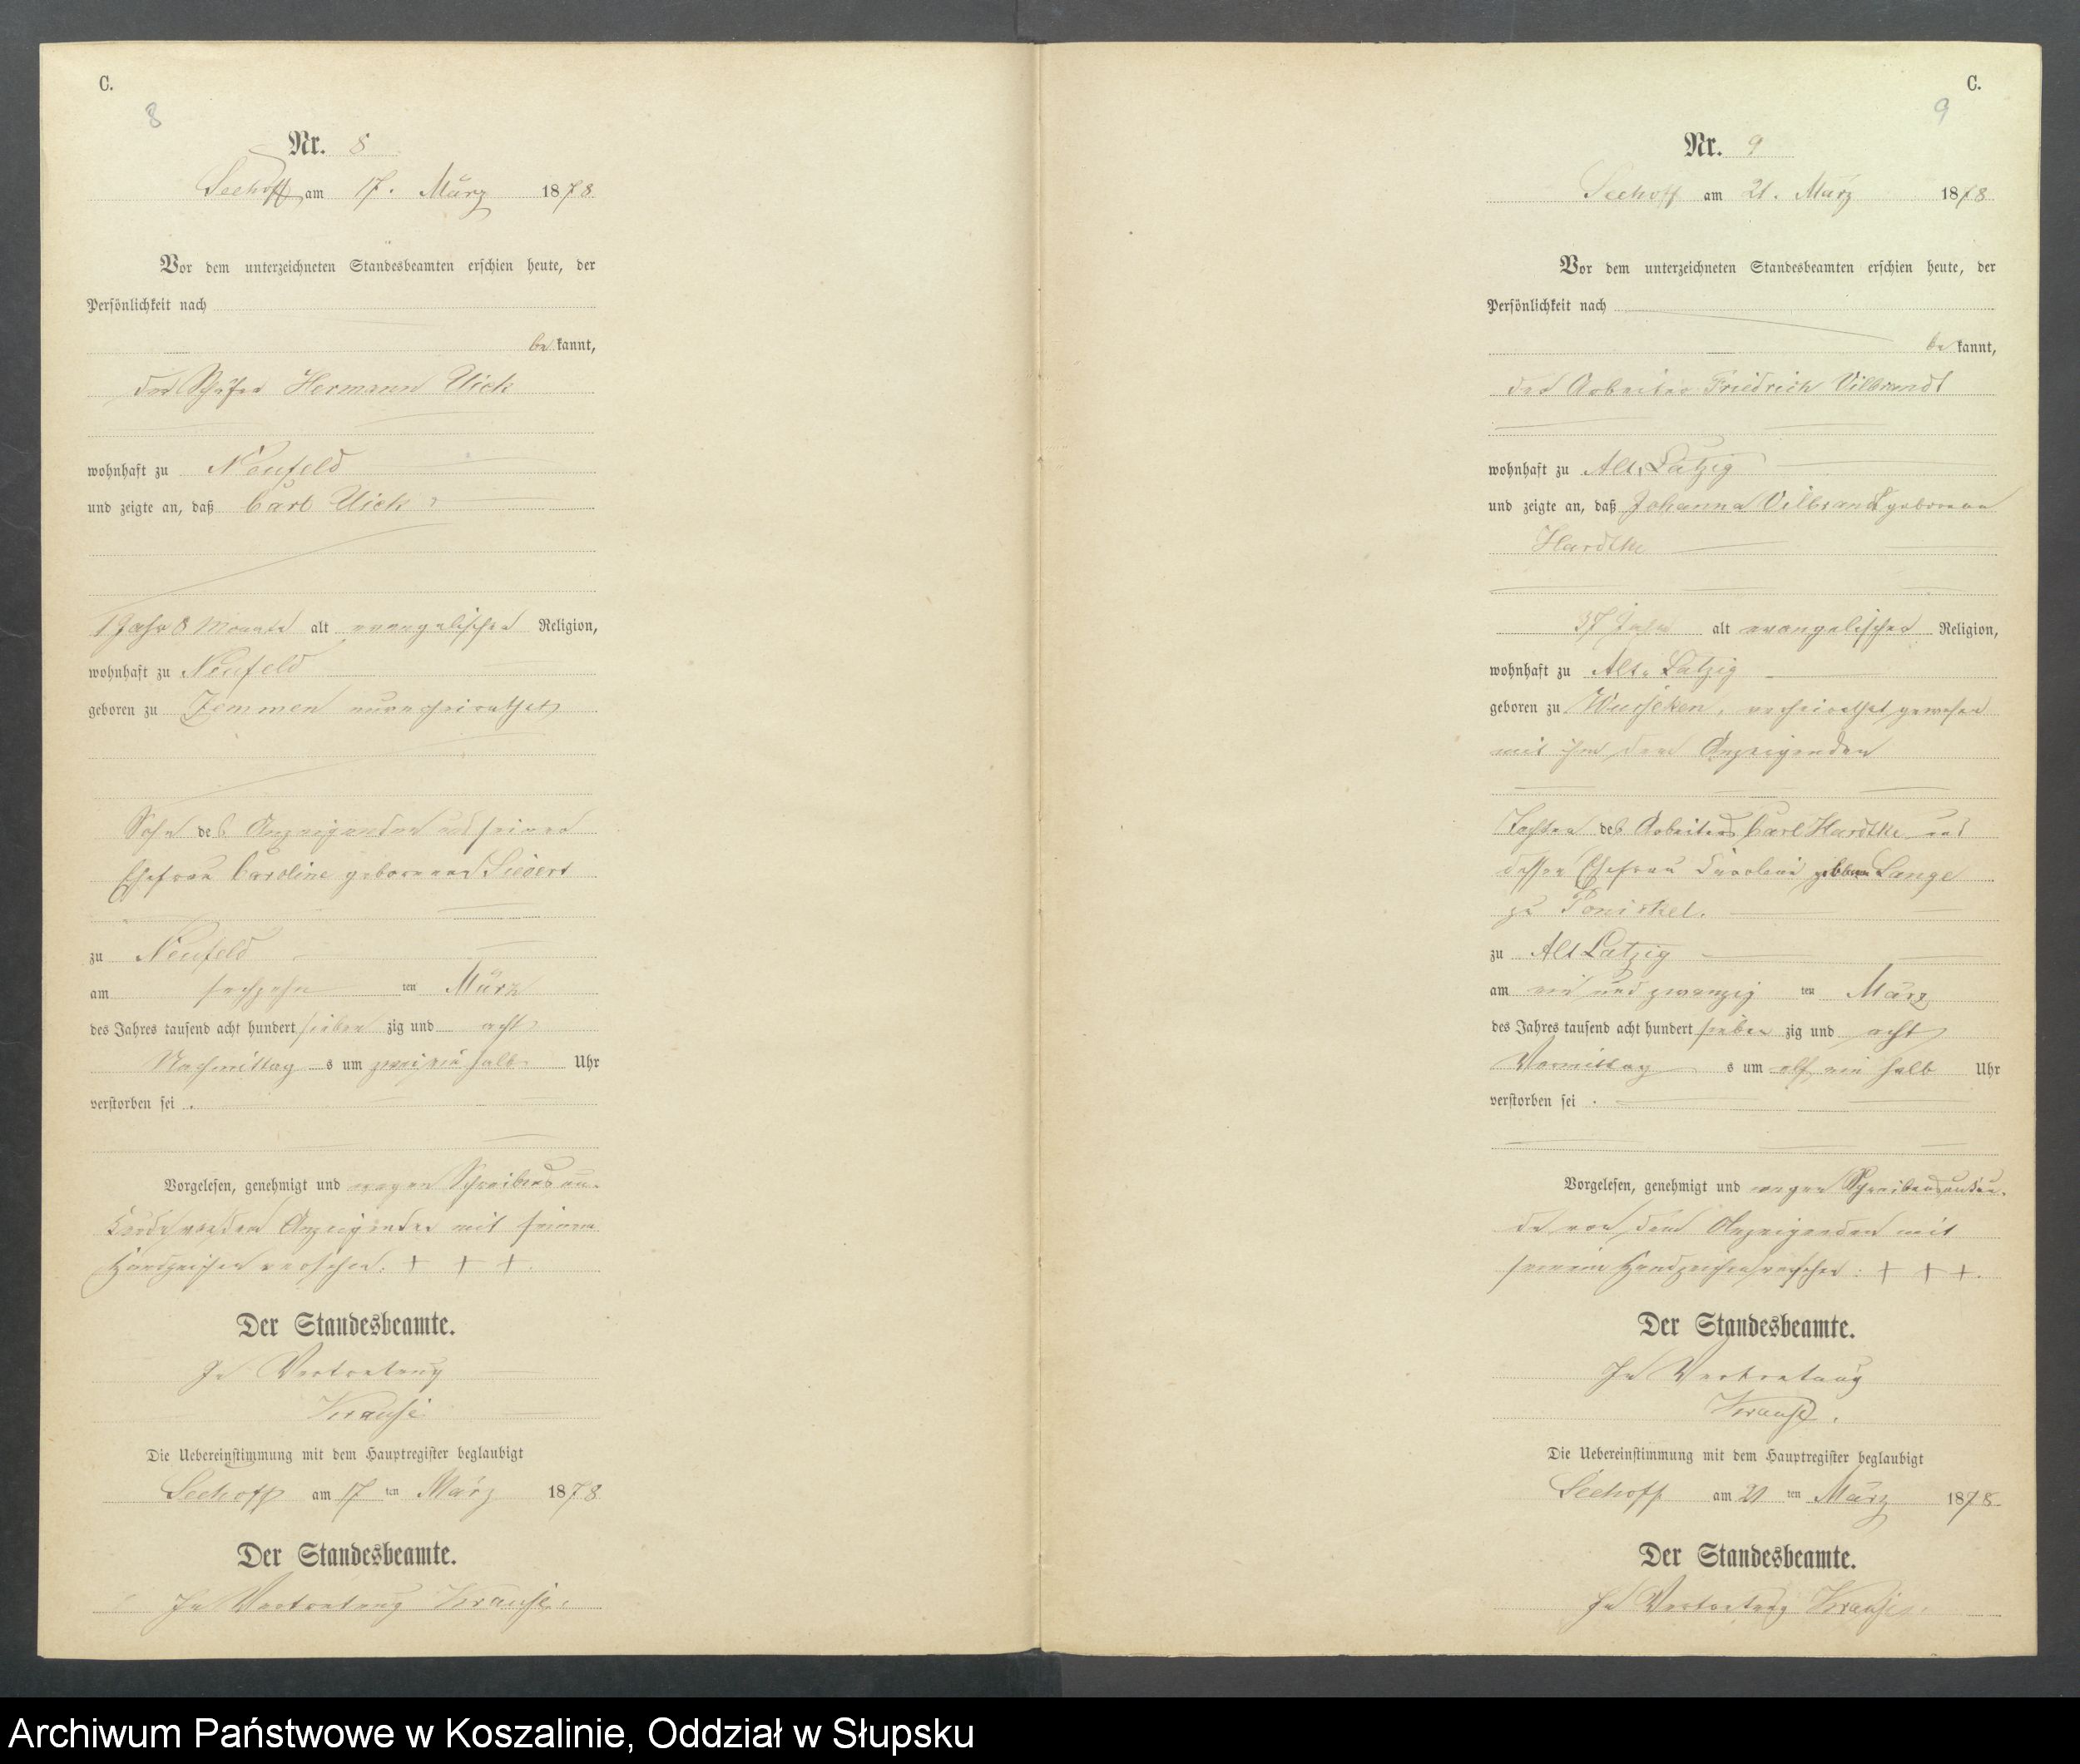 C.
8
Nr. 8
Seehoff am 17. März 1878
Vor dem unterzeichneten Standesbeamten erschien heute, der
Persönlichkeit nach
be kannt,
der Schäfer Hermann Uick
wohnhaft zu Neufeld
und zeigte an, daß Carl Uick
1 Jahr 8 Monate alt evangelischer Religion,
wohnhaft zu Neufeld
geboren zu Zemmen unverheirathet
Sohn des Anzeigenden und seiner
Ehefrau Caroline geborenen Siewert
zu Neufeld
am sechzehn ten März
des Jahres tausend acht hundert sieben zig und acht
Nachmittag s um zwei ein halb Uhr
verstorben sei .
Vorgelesen, genehmigt und wegen Schreibensun-
kunde von dem Anzeigenden mit seinem
Handzeichen versehen. + + +.
Der Standesbeamte.
In Vertretung
Krause
Die Uebereinstimmung mit dem Hauptregister beglaubigt
Seehoff am 17 ten März 1878
Der Standesbeamte.
In Vertretung Krause.
C.
9
Nr. 9
Seehoff am 21. März 1878
Vor dem unterzeichneten Standesbeamten erschien heute, der
Persönlichkeit nach
be kannt,
der Arbeiter Friedrich Vilbrandt
wohnhaft zu Alt, Latzig
und zeigte an, daß Johanna Vilbrandt geborene
Hardtke
37 Jahr alt evangelischer Religion,
wohnhaft zu Alt, Latzig
geboren zu Wusseken, verheirathet gewesen
mit ihm dem Anzeigenden
Tochter des Arbeiters Carl Hardtke und
dessen Ehefrau geborene Lange
zu Ponickel.
zu Alt Latzig
am ein und zwanzig ten März
des Jahres tausend acht hundert sieben zig und acht
Vormittag s um elf ein halb Uhr
verstorben sei .
Vorgelesen, genehmigt und wegen Schreibensunkun-
de von dem Anzeigenden mit
seinem Handzeichen versehen : + + +.
Der Standesbeamte.
In Vertretung
Krause.
Die Uebereinstimmung mit dem Hauptregister beglaubigt
Seehoff am 21 ten März 1878
Der Standesbeamte.
In Vertretung Krause.
Archiwum Państwowe w Koszalinie, Oddział w Słupsku